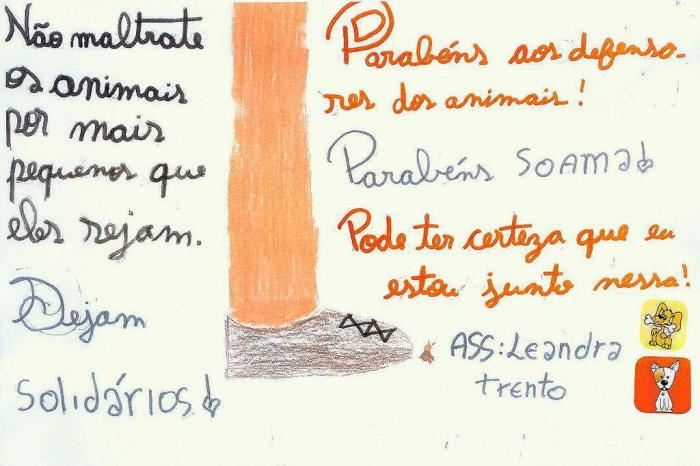 Não maltrate
os animais
por mais
pequenos que
eles sejam.
Dejam
solidários
Parabéns aos defenso-
res dos animais!
Parabéns SOAMA
Pode ter certeza que eu
estou junto nessa!
ASS: Leandra
trento